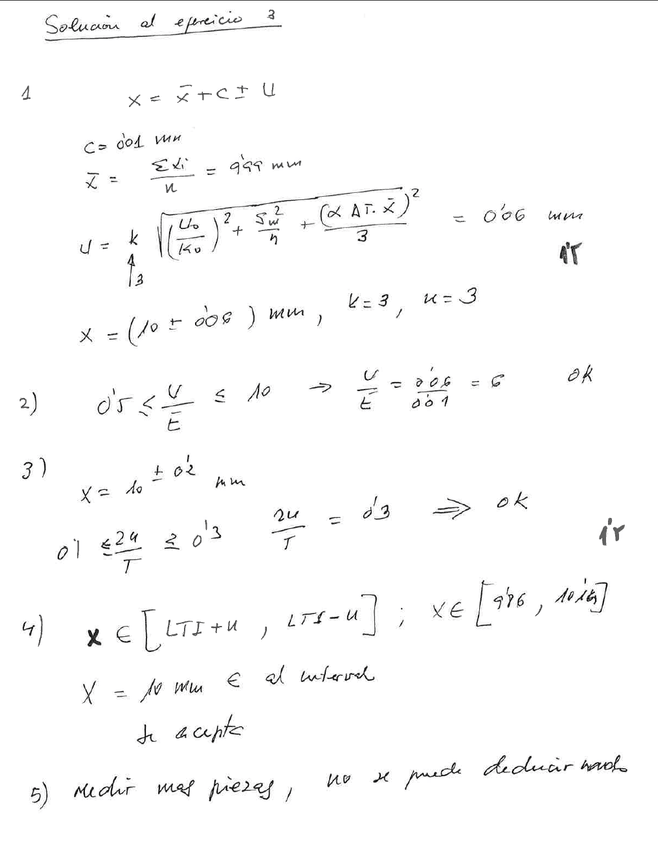 Solución al ejercicio 3
1 x = x̄ + c ± U
C = 0'01 mm
x̄ = Σxi / n = 9'99 mm
U = k √((U₀/K₀)² + Sw²/n + (α ΔT. x̄)²/3) = 0'06 mm
↑3
1'5
x = (10 ± 0'06) mm, k=3, n=3
2) 0'5 ≤ U/E ≤ 10 → U/E = 0'06/0'01 = 6 ok
3) x = 10 ± 0'2 mm
0'1 ≤ 2u/T ≤ 0'3 2u/T = 0'3 ⇒ ok
1'5
4) x ∈ [LTI+u, LTS-u]; x ∈ [9'86,
x = 10 mm ∈ al interval
se acepta
5) Medir mas piezas, no se puede deducir nada